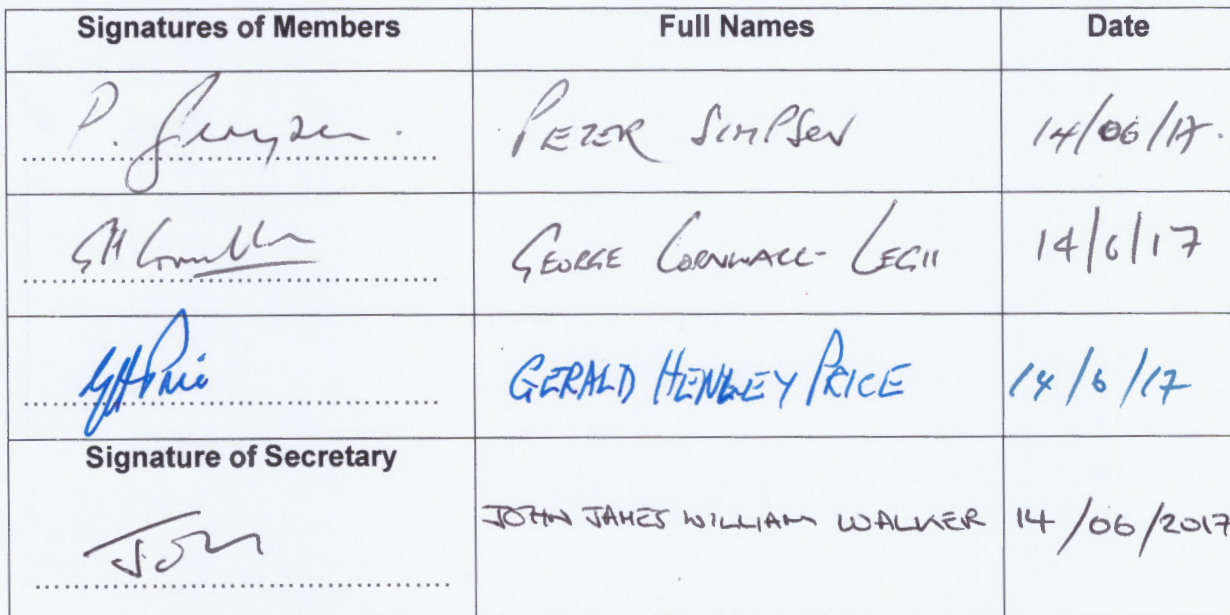 Signatures of Members Full Names Date
P. Simpson. PETER SIMPSON 14/06/17.
GEORGE CORNWALL-LEGH 14/6/17
GH Price GERALD HENLEY PRICE 14/6/17
Signature of Secretary
JOHN JAMES WILLIAM WALKER 14/06/2017